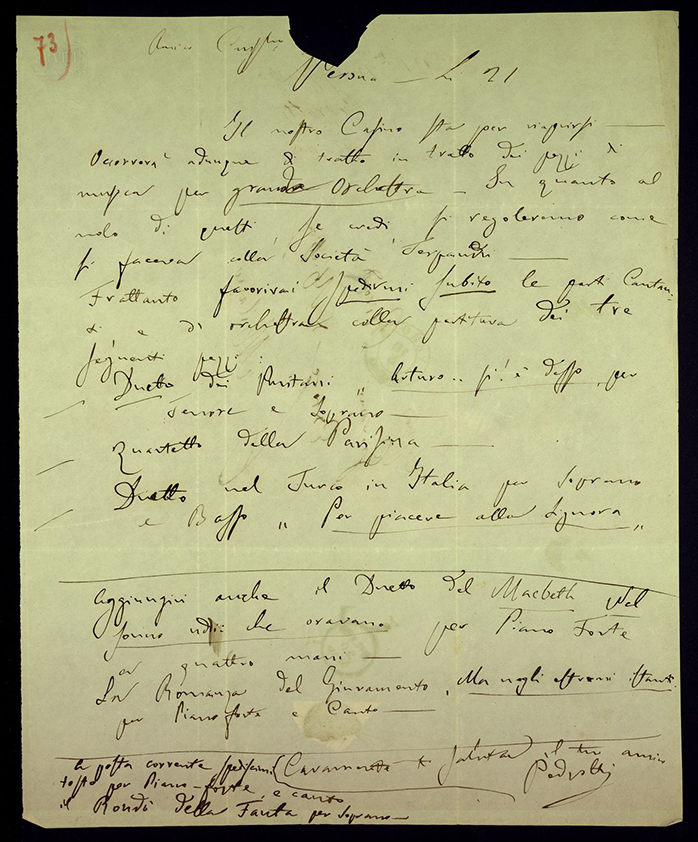 73)
Amico
Li 21
Il nostro Casino sta per riaprirsi —
Occorrerà adunque di tratto in tratto dei pezzi di
musica per grande Orchestra — In quanto al
nolo di questi se credi, si regoleremo come
si faceva colla Società
Frattanto favorirai spedirmi subito le parti Cantan-
ti e di orchestra colla partitura dei tre
seguenti pezzi:
Duetto dei Puritani „ Arturo.. sì! è desso, per
Tenore e Soprano —
Quartetto della Parisina —
Duetto nel Turco in Italia per Soprano
e Basso „ Per piacere alla Signora „
Aggiungivi anche il Duetto del Macbeth Nel
sonno udii che oravano per Piano Forte
a quattro mani —
La Romanza del Giuramento, Ma negli estremi istanti
per Piano forte e Canto —
la posta corrente spediscimi
tosto per Piano-forte, e canto
il Rondò della Fausta per Soprano —
Caramente ti saluta il tuo amico